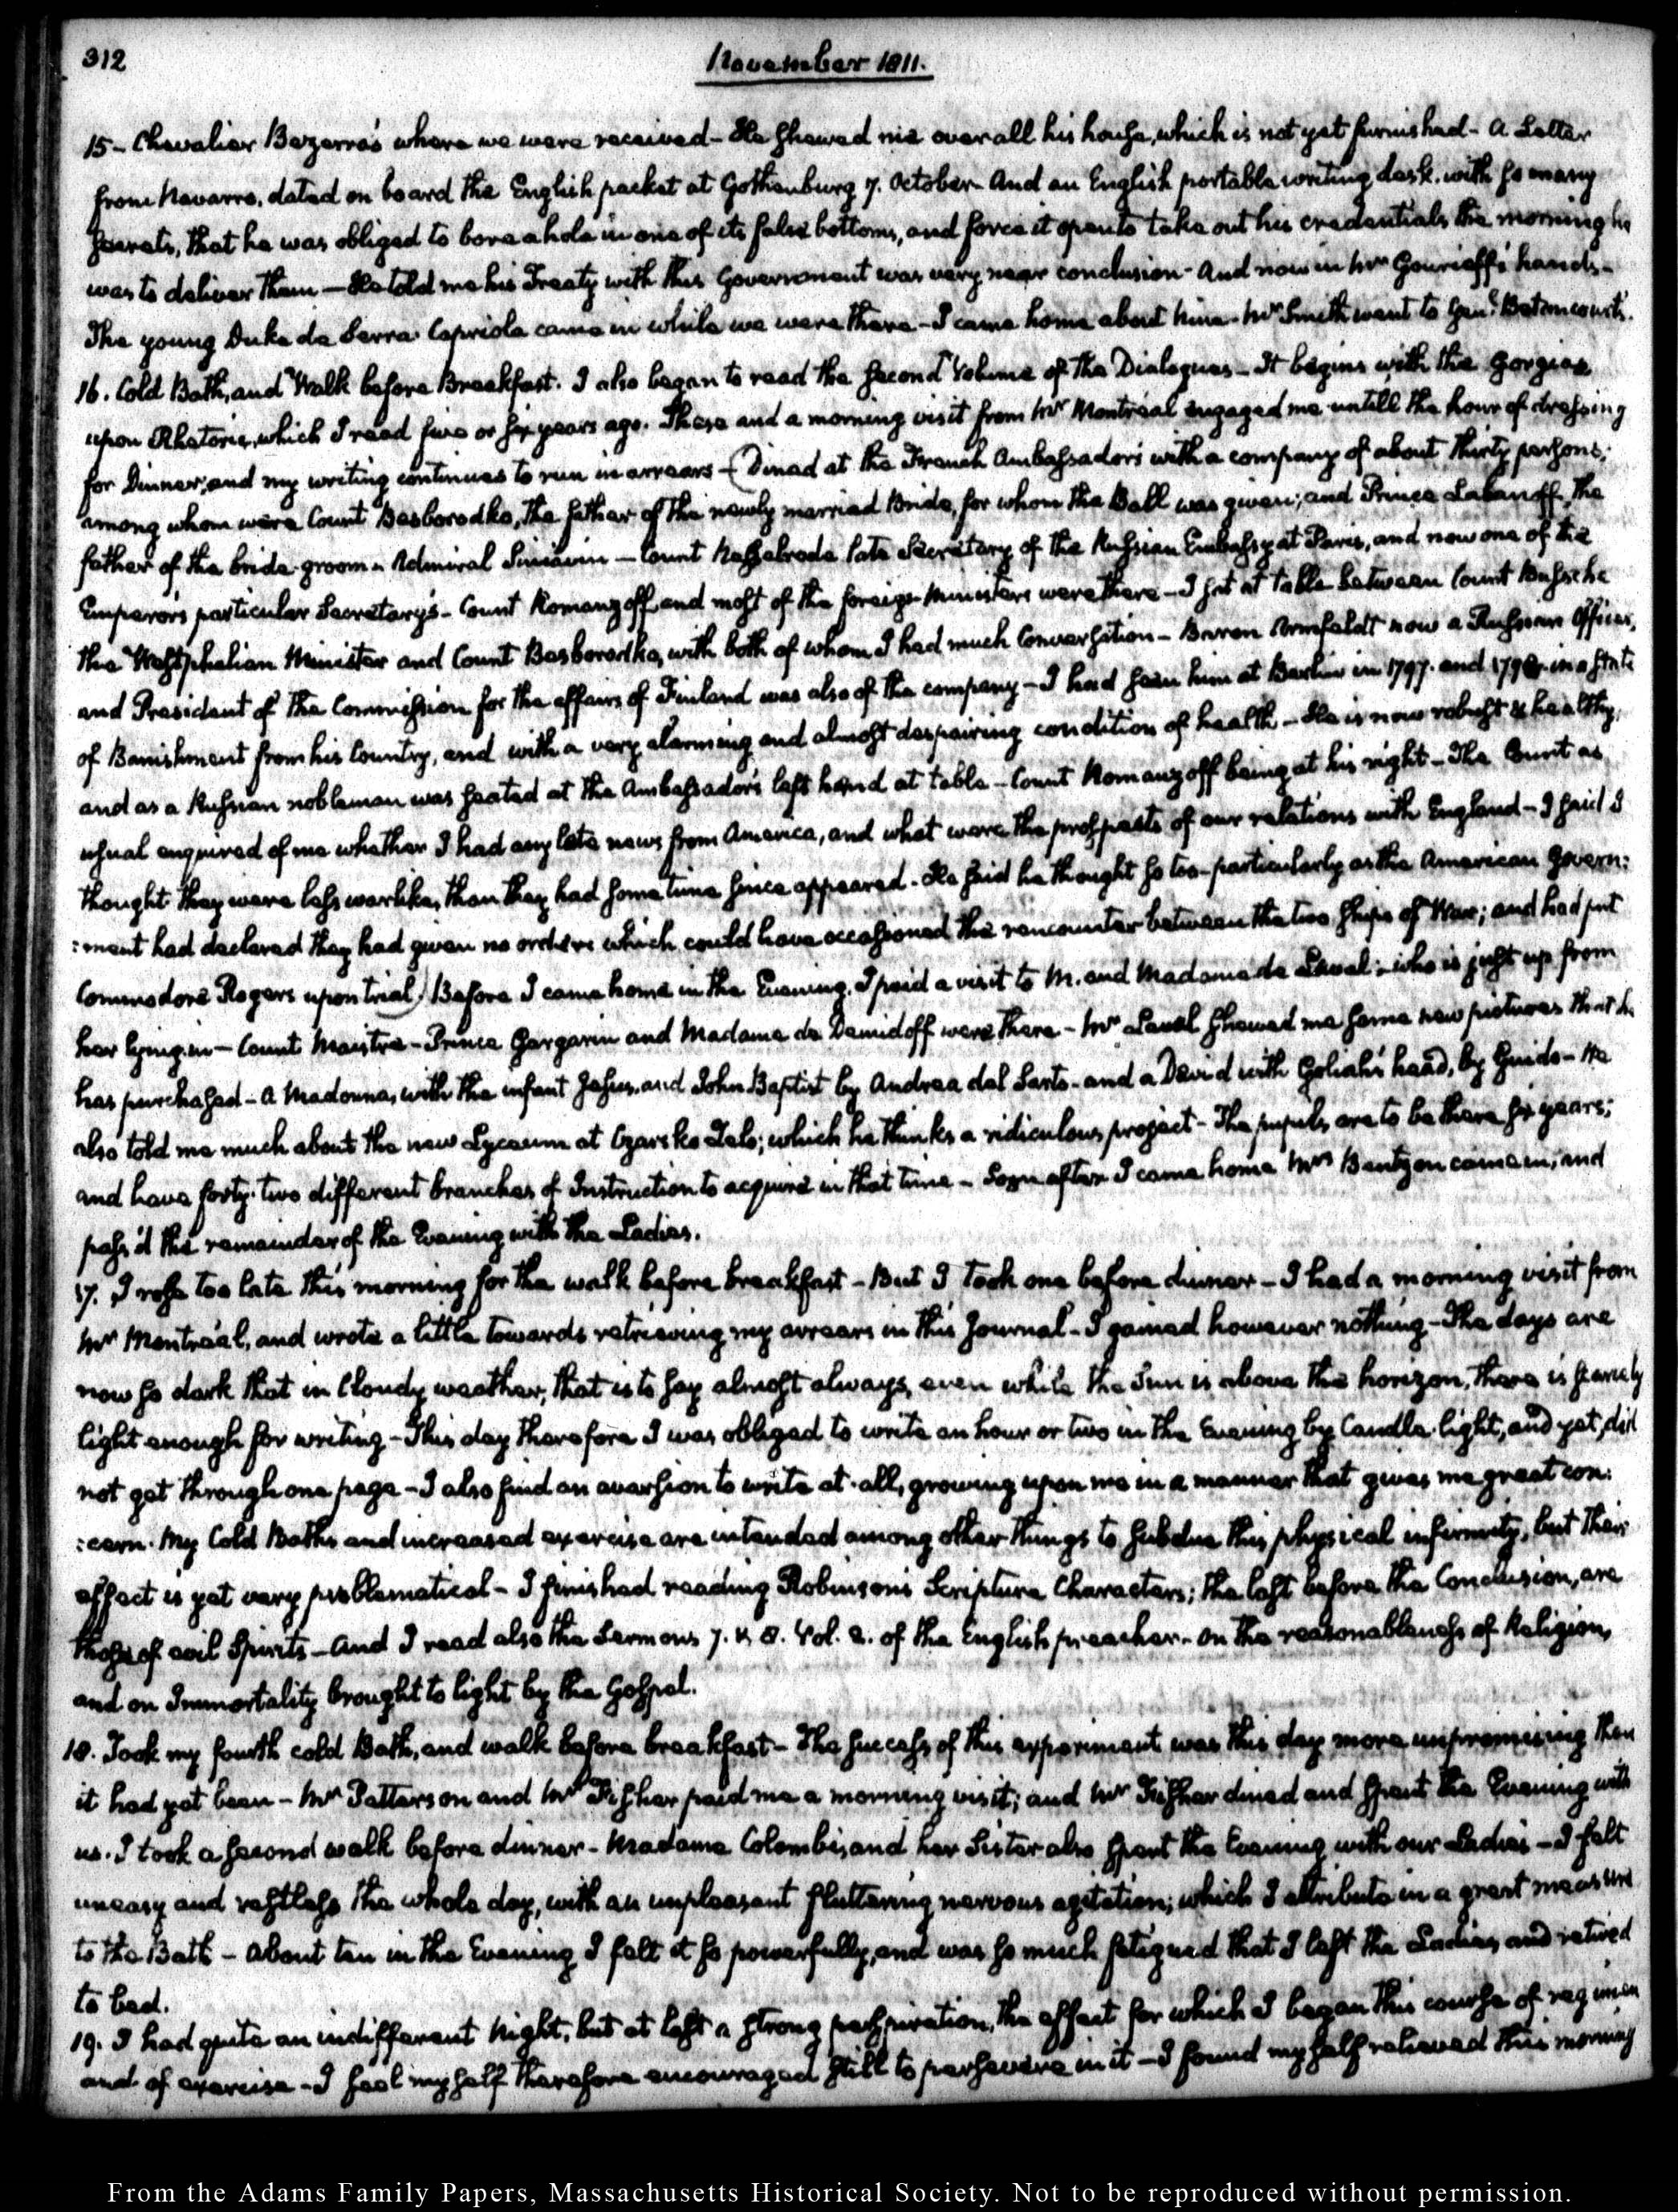 312
November 1811.
15 - Chevalier Bezerra's where we were received - He shewed me over all his house, which is not yet furnished - A Letter
from Navarro, dated on board the English packet at Gothenburg 7. October - And an English portable writing desk, with so many
secrets, that he was obliged to bore a hole in one of its false bottoms, and force it open to take out his credentials the morning he
was to deliver them - He told me his Treaty with this Government was very near conclusion - And now in Mr Gourieff's hands -
The young Duke de Serra Capriola came in while we were there - I came home about nine - Mr Smith went to Genl. Betancourt's.
16. Cold Bath, and Walk before Breakfast. I also began to read the second Volume of the Dialogues - It begins with the Gorgias
upon Rhetoric, which I read five or six years ago. These and a morning visit from Mr Montréal engaged me untill the hour of dressing
for Dinner; and my writing continues to run in arrears - (Dined at the French Ambassador's with a company of about thirty persons;
among whom were Count Besborodko, the father of the newly married Bride, for whom the Ball was given; and Prince Labanoff, the
father of the bride-groom - Admiral Siniavin - Count Nesselrode late Secretary of the Russian Embassy at Paris, and now one of the
Emperor's particular Secretary's - Count Romanzoff and most of the foreign Ministers were there - I sat at table between Count Bussche
the Westphalian Minister and Count Besborodko, with both of whom I had much Conversation - Baron Armfeldt now a Russian Officer,
and President of the Commission for the affairs of Finland was also of the company - I had seen him at Berlin in 1797. and 1798. in a state
of Banishment from his Country, and with a very alarming and almost despairing condition of health - He is now robust & healthy,
and as a Russian nobleman was seated at the Ambassador's left hand at table - Count Romanzoff being at his right - The Count as
usual enquired of me whether I had any late news from America, and what were the prospects of our relations with England - I said I
thought they were less warlike, than they had some time since appeared - He said he thought so too - particularly as the American Govern:
:ment had declared they had given no orders which could have occasioned the rencounter between the two ships of War; and had put
Commodore Rogers upon trial) Before I came home in the Evening, I paid a visit to M. and Madame de Laval - who is just up from
her lying-in - Count Maistre - Prince Gargarin and Madame de Demidoff were there - Mr Laval shewed me some new pictures that he
has purchased - A Madonna, with the infant Jesus, and John Baptist by Andrea del Sarto - and a David with Goliah's head, by Guido - He
also told me much about the new Lycaeum at Czarsko Zelo; which he thinks a ridiculous project - The pupils are to be there six years;
and have forty-two different branches of Instruction to acquire in that time - Soon after I came home Mrs Bentzon came in, and
pass'd the remainder of the Evening with the Ladies.
17. I rose too late this morning for the walk before breakfast - But I took one before dinner - I had a morning visit from
Mr Montréal, and wrote a little towards retrieving my arrears in this Journal - I gained however nothing - The days are
now so dark that in Cloudy weather, that is to say almost always, even while the Sun is above the horizon, there is scarcely
light enough for writing - This day therefore I was obliged to write an hour or two in the Evening by Candle-light, and yet, did
not get through one page - I also find an aversion to write at all, growing upon me in a manner that gives me great con:
:cern. My Cold Baths and increased exercise are intended among other things to subdue this physical infirmity, but their
effect is yet very problematical - I finished reading Robinson's Scripture Characters; the last before the Conclusion, are
those of evil Spirits - And I read also the Sermons 7. & 8. Vol. 2. of the English preacher - On the reasonableness of Religion,
and on Immortality brought to light by the Gospel.
18. Took my fourth cold Bath, and walk before breakfast - The success of this experiment was this day more unpromising than
it had yet been - Mr Patterson and Mr Fisher paid me a morning visit; and Mr Fisher dined and spent the Evening with
us. I took a second walk before dinner - Madame Colombi, and her Sister also spent the Evening with our Ladies - I felt
uneasy and restless the whole day, with an unpleasant fluttering nervous agitation; which I attribute in a great measure
to the Bath - About ten in the Evening I felt it so powerfully, and was so much fatigued that I left the Ladies, and retired
to bed.
19. I had quite an indifferent Night, but at last a strong perspiration, the effect for which I began this course of regimen
and of exercise - I feel myself therefore encouraged still to persevere in it - I found myself relieved this morning
From the Adams Family Papers, Massachusetts Historical Society. Not to be reproduced without permission.